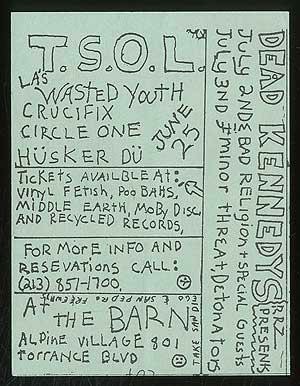 T.S.O.L.
LA'S
WASTED YOUTH
CRUCIFIX
CIRCLE ONE
HÜSKER DÜ
JUNE
25
TICKETS AVAILBLE AT:
VINYL FETISH, POO BAHS,
MIDDLE EARTH, MOBY DISC,
AND RECYCLED RECORDS,
FOR MORE INFO AND
RESEVATIONS CALL:
(213) 857-1700.
AT
THE BARN
ALPINE VILLAGE 801
TORRANCE BLVD
SAN PEDRO FREEWAY
DEAD KENNEDYS
PRESENTS
JULY 2ND BAD RELIGION + SPECIAL GUESTS
JULY 3ND MINOR THREAT DETONATORS